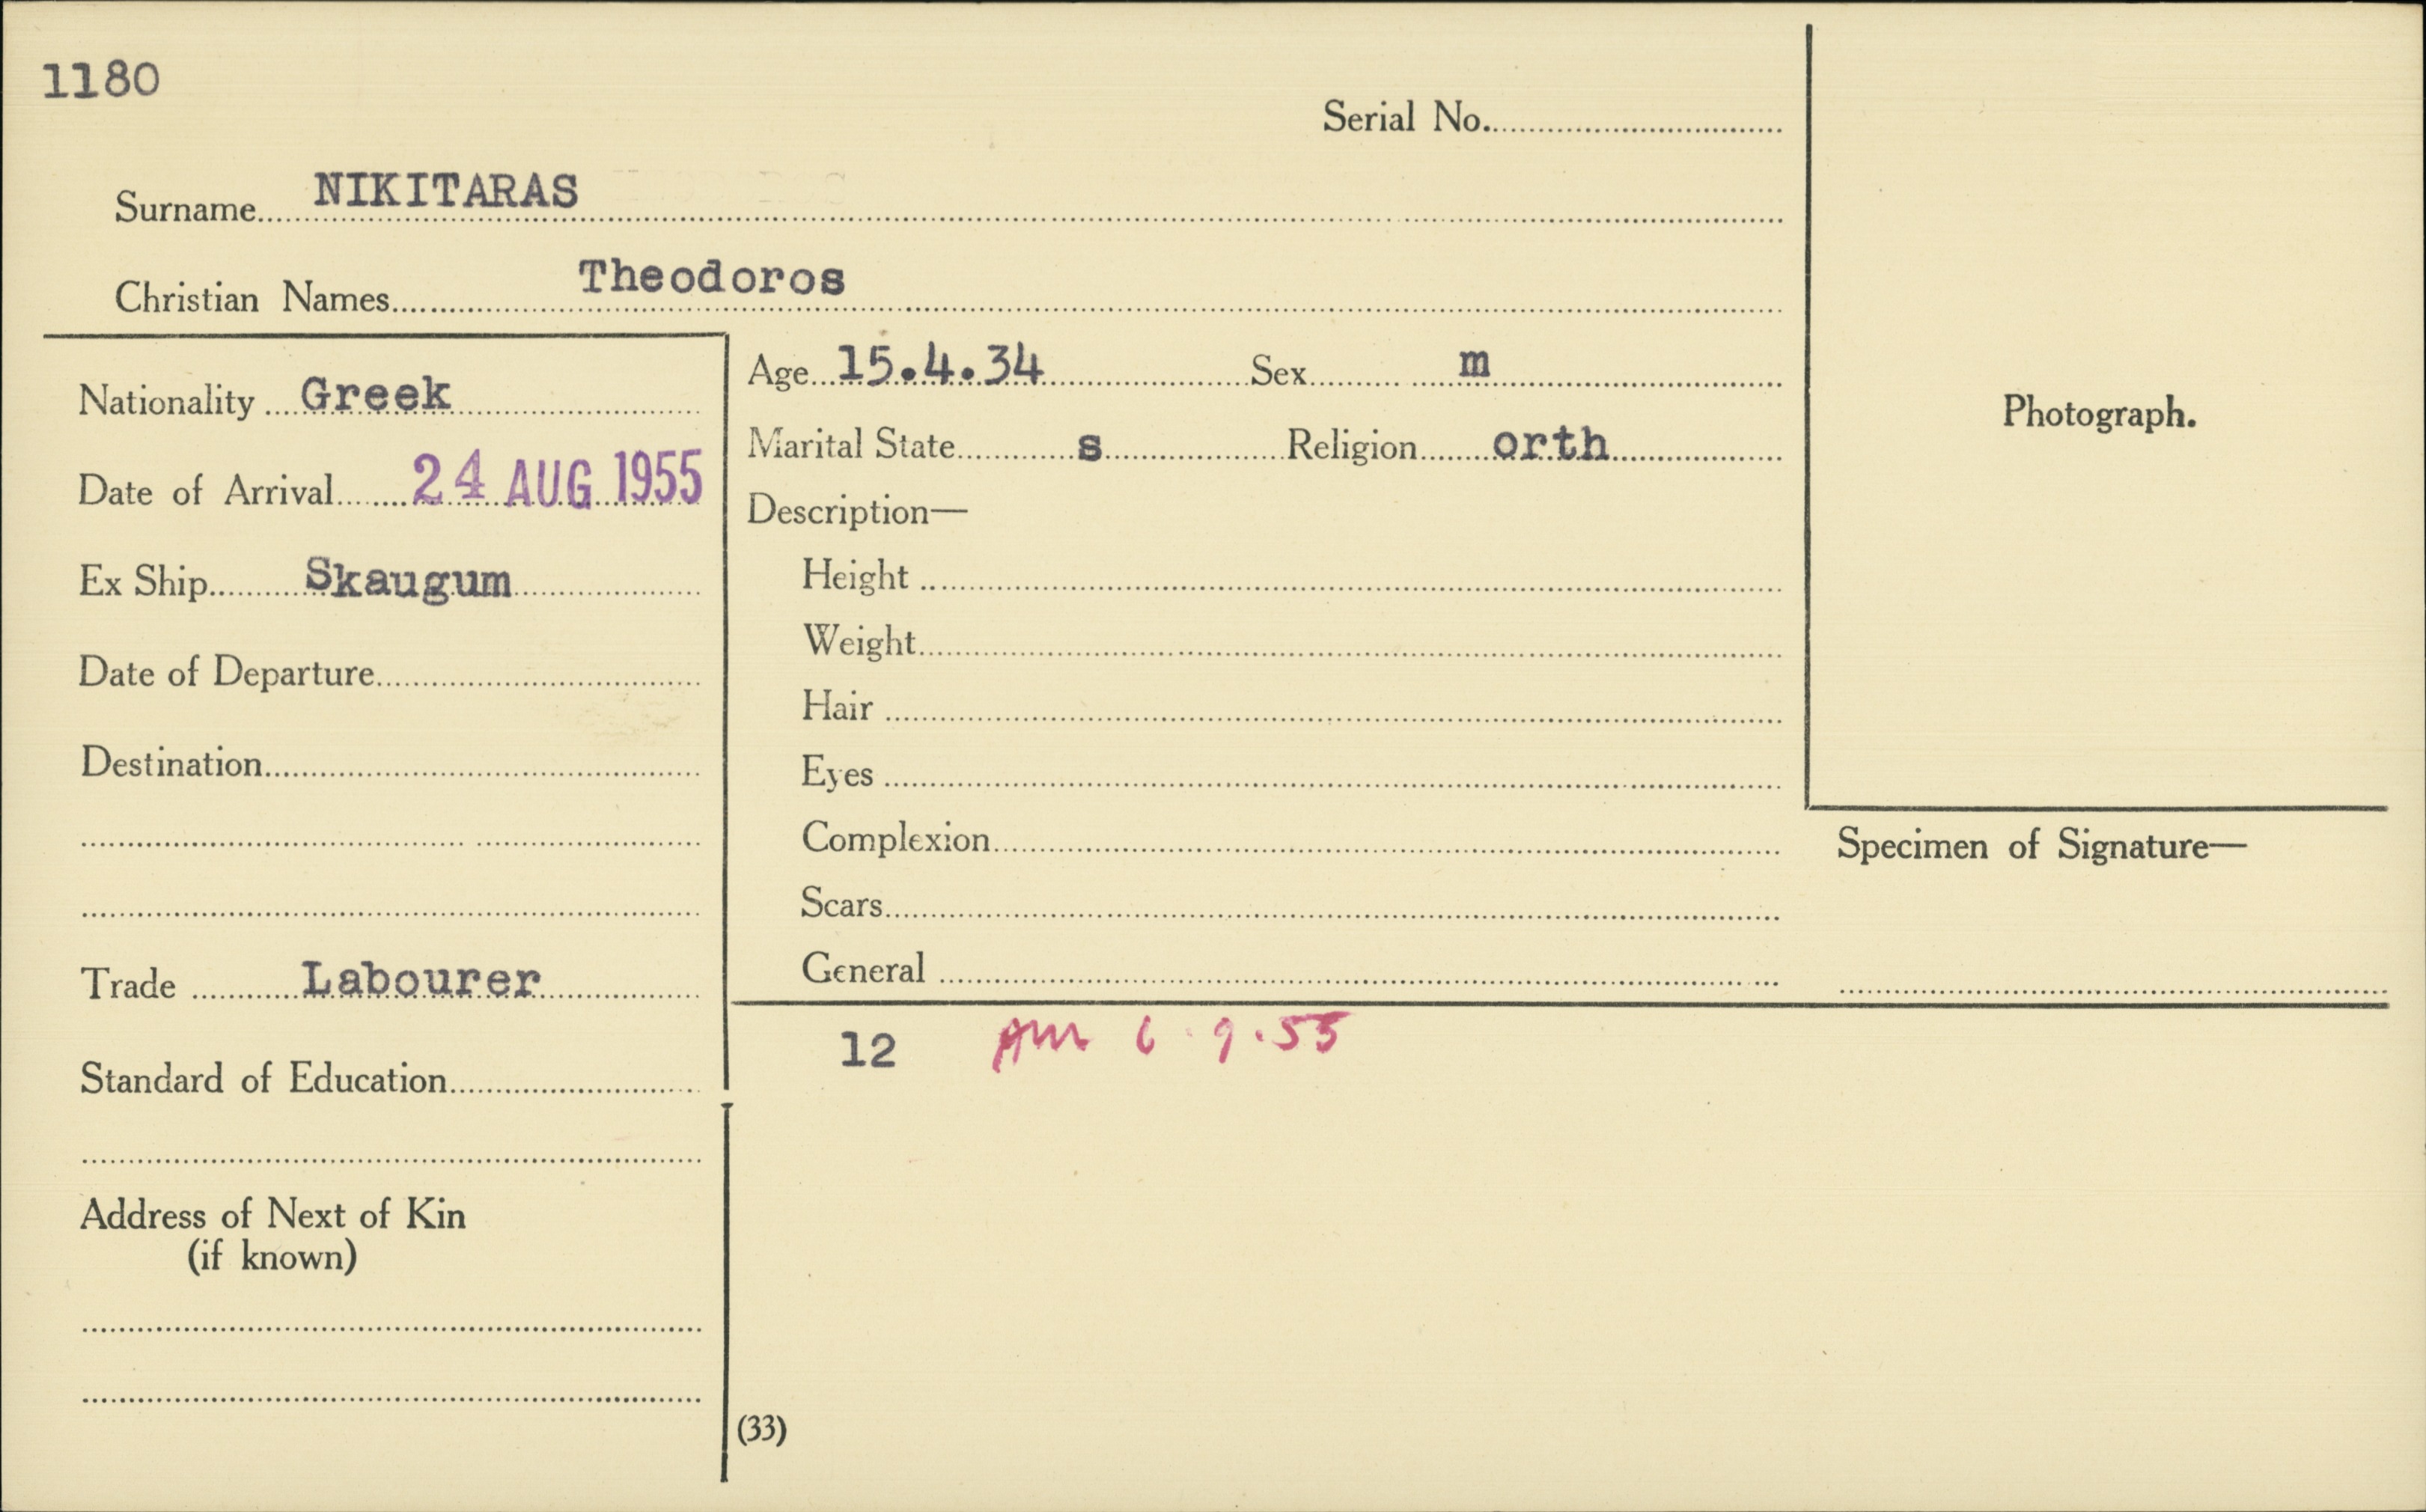 1180
Serial No.
Surname NIKITARAS
Christian Names Theodoros
Nationality Greek
Date of Arrival 24 AUG 1955
Ex Ship Skaugum
Date of Departure
Destination
Trade Labourer
Standard of Education
Address of Next of Kin
(if known)
Age 15.4.34 Sex m
Marital State s Religion orth
Description—
Height
Weight
Hair
Eyes
Complexion
Scars
General
Photograph.
Specimen of Signature—
12 6.9.55
(33)